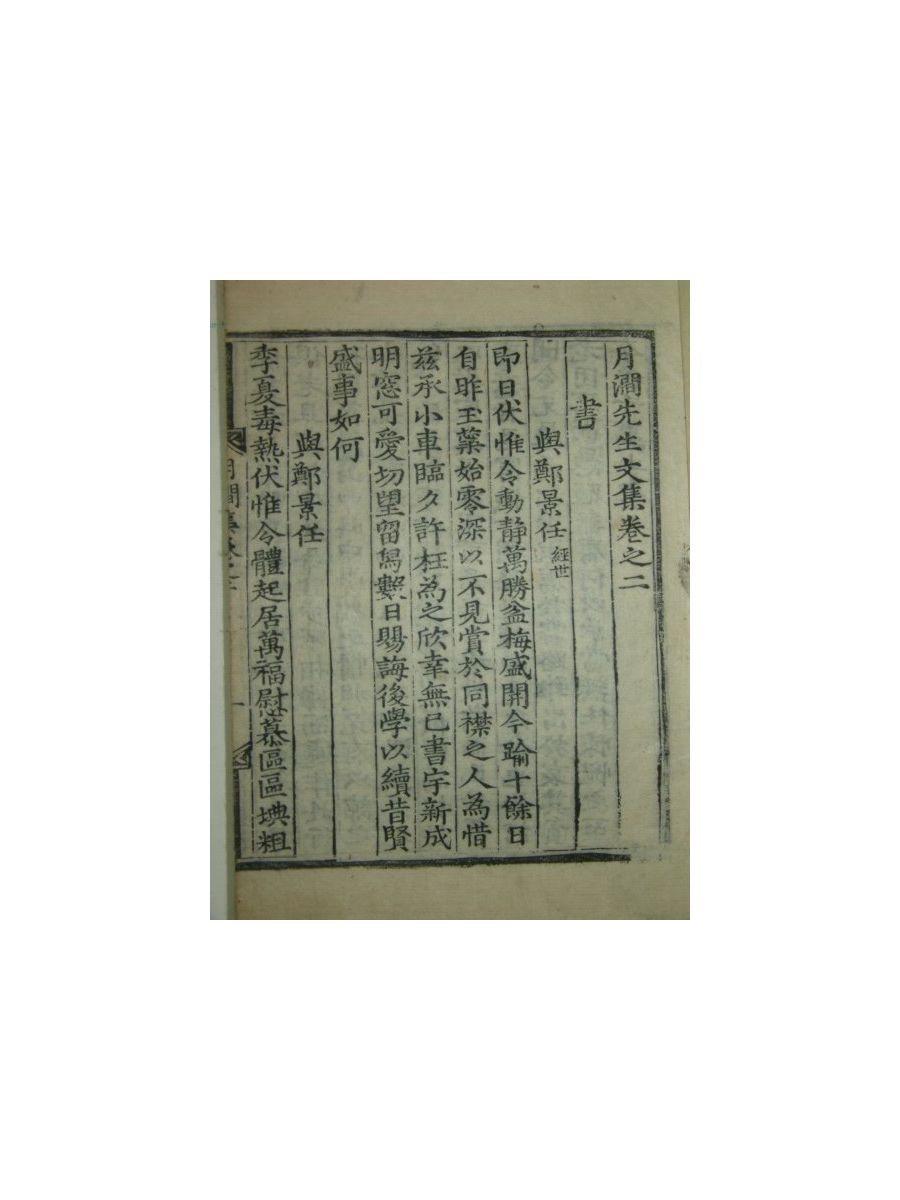 月澗先生文集卷之二
書
與鄭景任 經世
即日伏惟令動靜萬勝盆梅盛開今踰十餘日
自昨玉蘂始零深以不見賞於同襟之人為惜
玆承小車臨夕許枉為之欣幸無已書宇新成
明窓可愛切望留舄數日賜誨後學以續昔賢
盛事如何
與鄭景任
季夏毒熱伏惟令體起居萬福慰慕區區㙉粗
月澗集卷之二
一